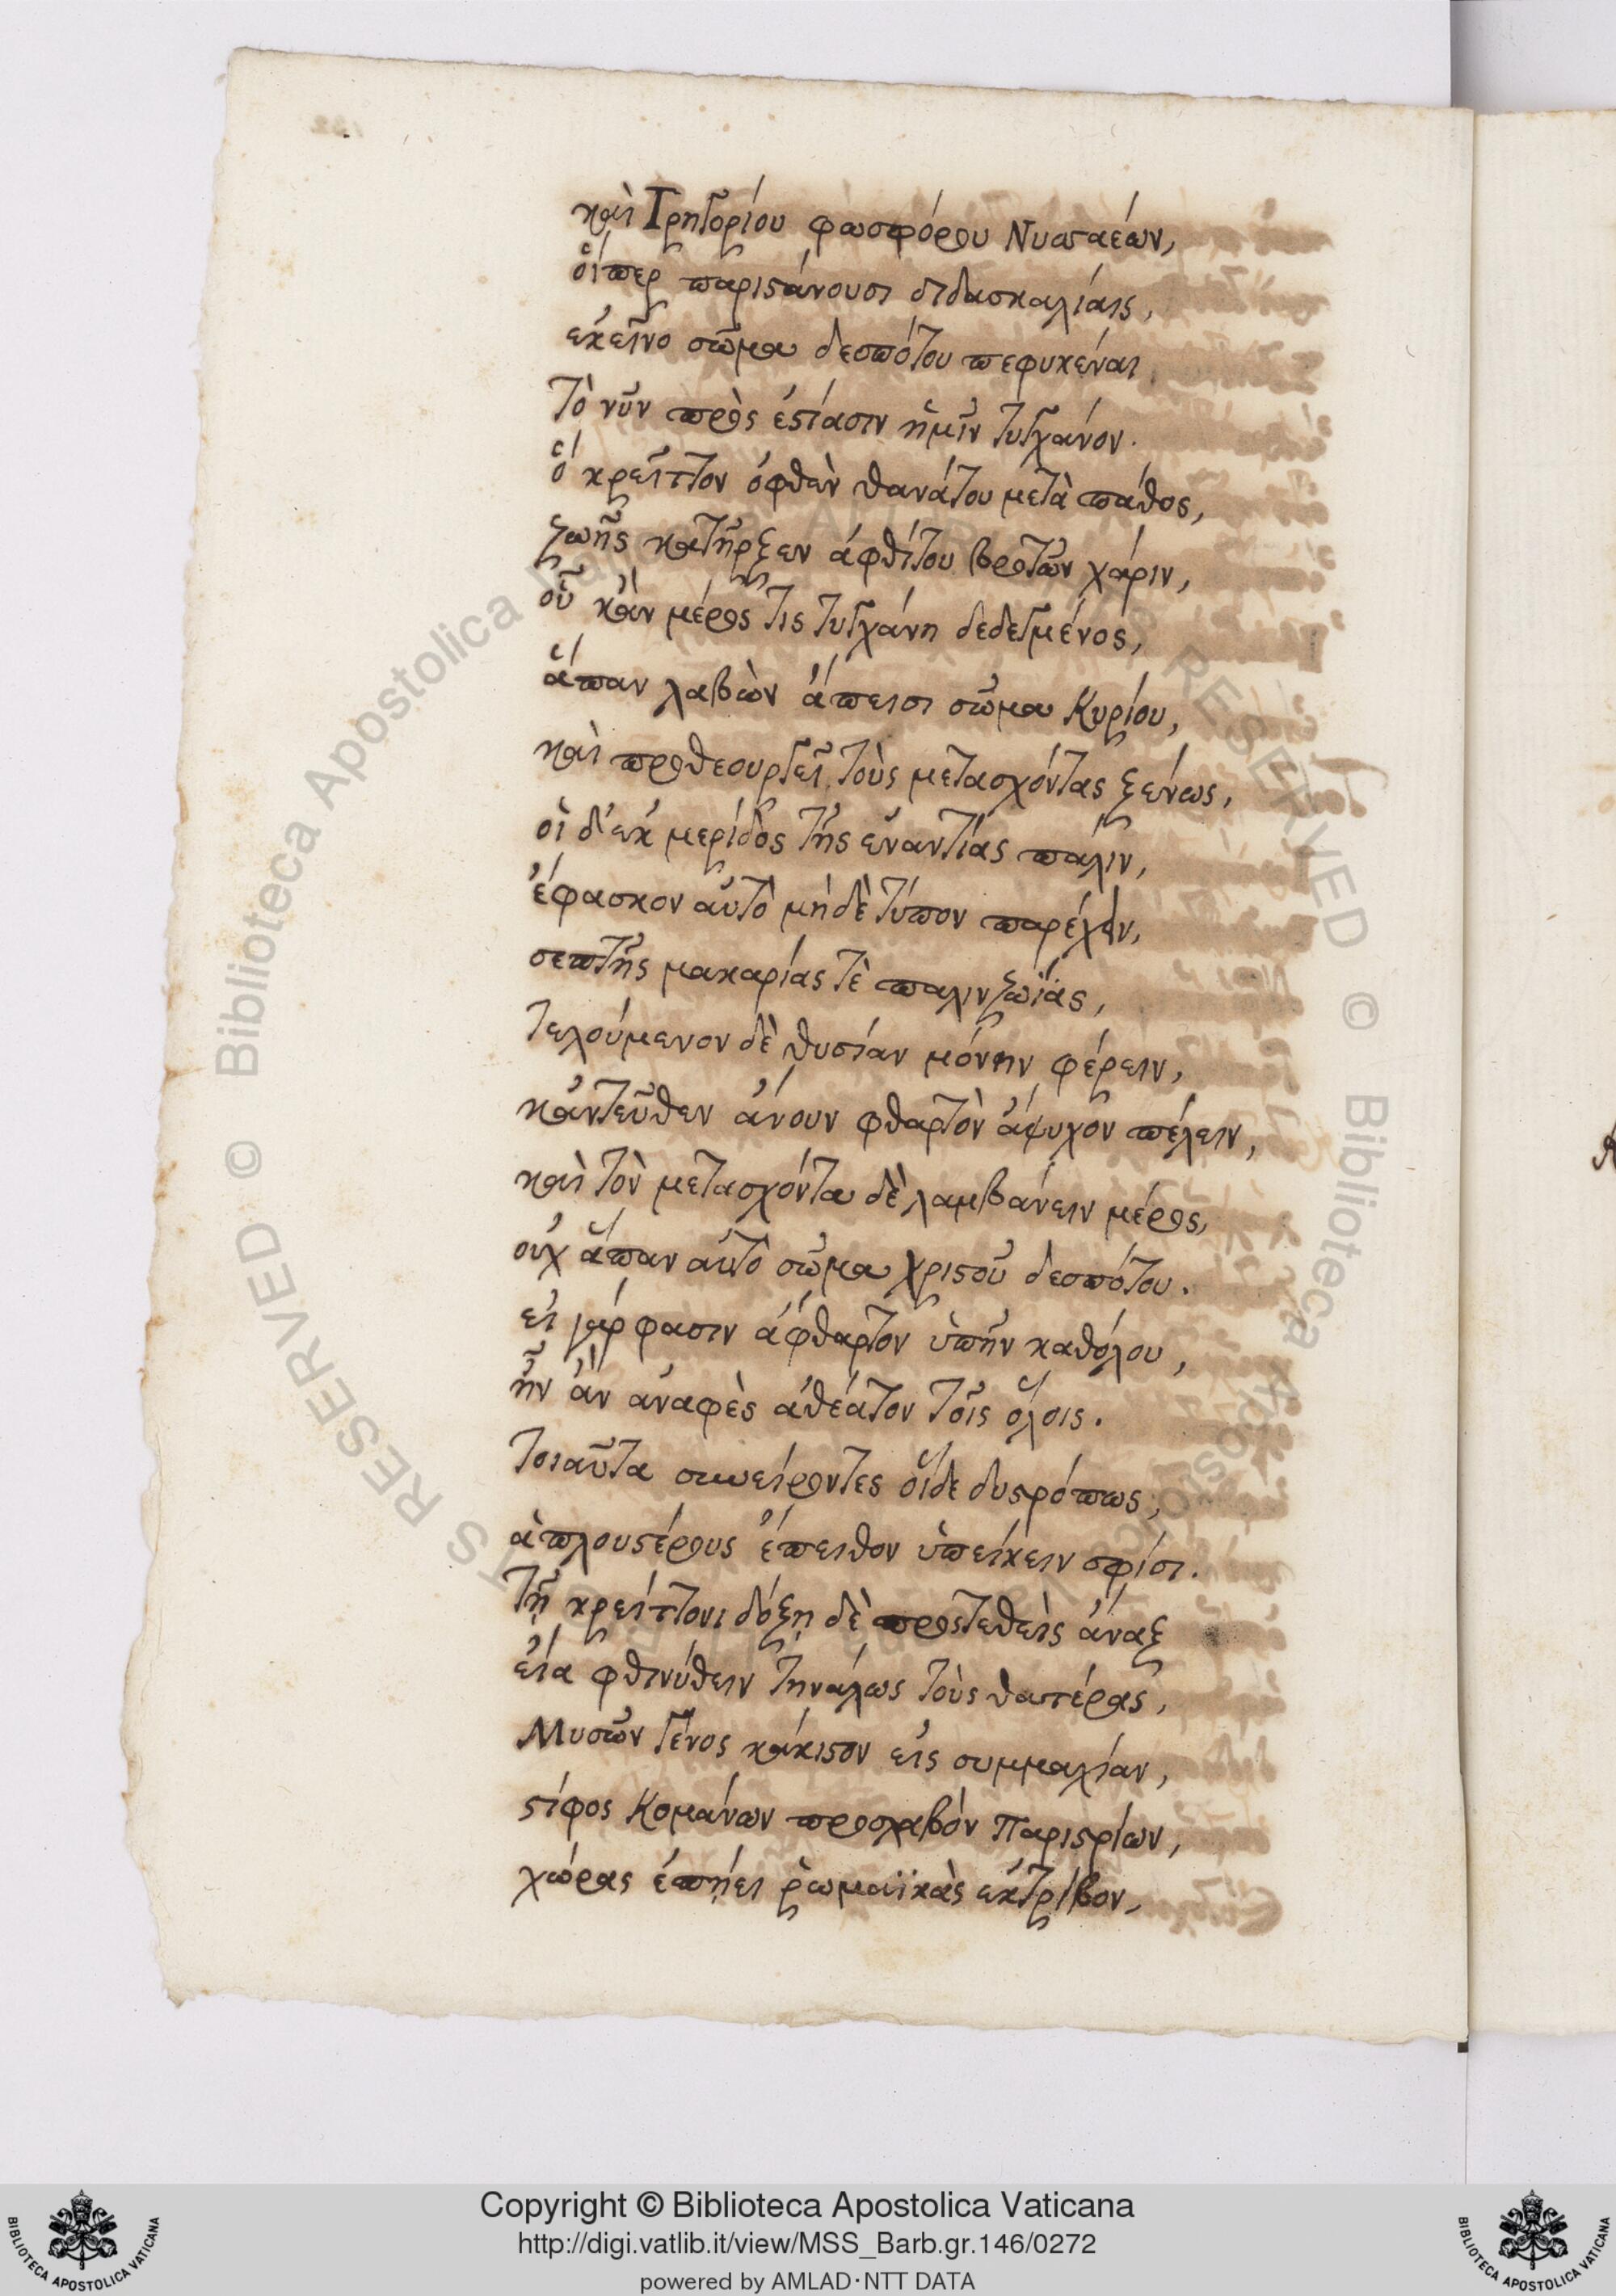 καὶ Γρηγορίου φωσφόρου Νυσσαέων,
οἵπερ παριστάνουσι διδασκαλίαις,
ἐκεῖνο σῶμα δεσπότου πεφυκέναι
τὸ νῦν πρὸς ἑστίασιν ἡμῖν τυγχάνον.
ὃ κρεῖττον ὀφθὲν θανάτου μετὰ πάθος,
ζωῆς κατῆρξεν ἀφθίτου βροτῶν χάριν,
οὗ κἂν μέρος τις τυγχάνῃ δεδεγμένος,
ἅπαν λαβὼν ἄπεισι σῶμα Κυρίου,
καὶ προθεουργεῖ τοὺς μετασχόντας ξένως,
οἱ δ' ἐκ μερίδος τῆς ἐναντίας πάλιν,
ἔφασκον αὐτὸ μηδὲ τύπον παρέχειν,
σεπτῆς μακαρίας τὲ παλινζωΐας,
τελούμενον δὲ θυσίαν μόνην φέρειν,
κἀντεῦθεν ἄνουν φθαρτὸν ἄψυχον πέλειν,
καὶ τὸν μετασχόντα δὲ λαμβάνειν μέρος,
οὐχ ἅπαν αὐτὸ σῶμα χριστοῦ δεσπότου.
εἰ γάρ φασιν ἄφθαρτον ὑπῆν καθόλου,
ἦν ἂν ἀναφὲς ἀθέατον τοῖς ὅλοις.
τοιαῦτα συνείροντες οἵδε δυστρόπως,
ἁπλουστέρους ἔπειθον ὑπείκειν σφίσι.
τῇ κρείττονι δόξῃ δὲ προστεθεὶς ἄναξ
εἴα φθινύθειν τηνάλως τοὺς θατέρας,
Μυσῶν γένος κάκιστον εἰς συμμαχίαν,
στίφος Κομάνων προσλαβὸν Παριστρίων,
χώρας ἐπῄει ῥωμαϊκὰς ἐκτρίβον,
Copyright © Biblioteca Apostolica Vaticana
http://digi.vatlib.it/view/MSS_Barb.gr.146/0272
powered by AMLAD·NTT DATA